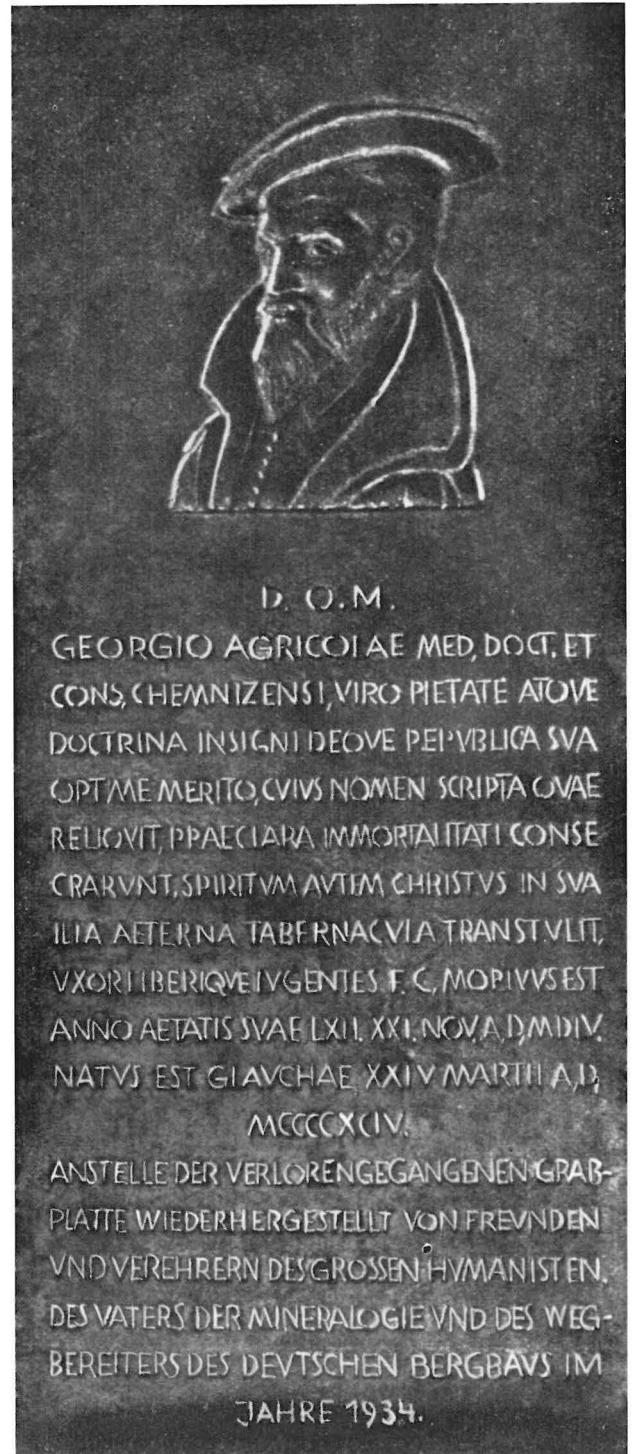 D. O. M.
GEORGIO AGRICOLAE MED, DOCT, ET
CONS, CHEMNIZENSI, VIRO PIETATE ATQVE
DOCTRINA INSIGNI DEQVE REPVBLICA SVA
OPTIME MERITO, CVIVS NOMEN SCRIPTA QVAE
RELIQVIT, PRAECLARA IMMORTALITATI CONSE
CRARVNT, SPIRITVM AVTEM CHRISTVS IN SVA
ILLA AETERNA TABERNACVLA TRANSTVLIT,
VXOR LIBERIQVE LVGENTES. F. C, MORTVVS EST
ANNO AETATIS SVAE LXII. XXI. NOV, A, D, MDLV.
NATVS EST GLAVCHAE XXIV MARTII A, D,
MCCCCXCIV.
ANSTELLE DER VERLORENGEGANGENEN GRAB-
PLATTE WIEDERHERGESTELLT VON FREVNDEN
VND VEREHRERN DES GROSSEN HVMANISTEN,
DES VATERS DER MINERALOGIE VND DES WEG-
BEREITERS DES DEVTSCHEN BERGBAVS IM
JAHRE 1934.